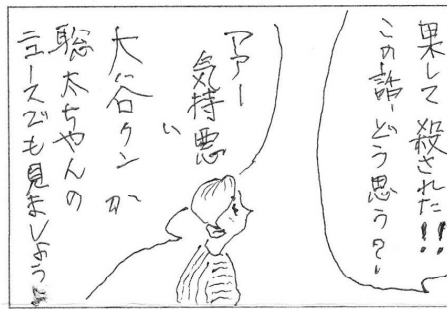 果して殺された!!
この話、どう思う?
アアー
気持悪い
大谷クンか
聡太ちゃんの
ニュースでも見ましょう